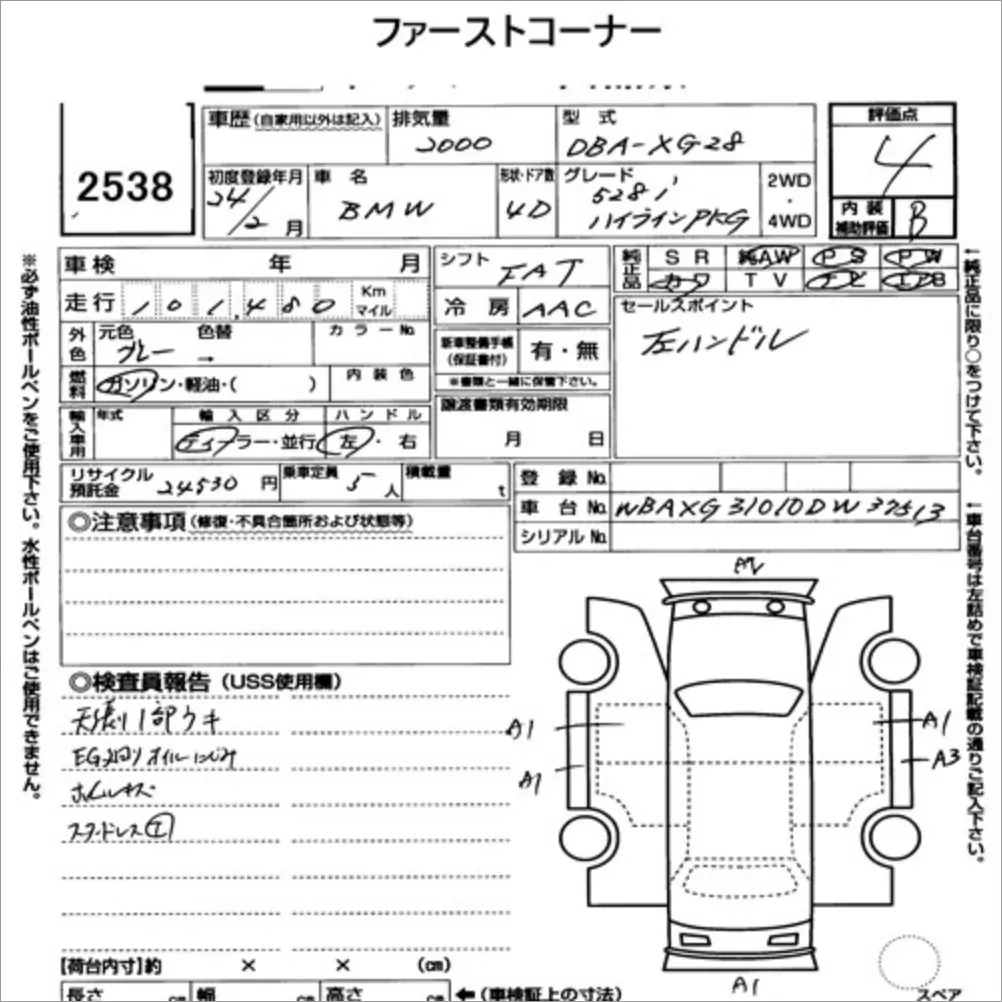 ファーストコーナー
2538
車歴 (自家用以外は記入) 排気量 2000 型式 DBA-XG28
評価点 4
初度登録年月 24/2月 車名 BMW 形状・ドア数 4D グレード 528i ハイラインPKG 2WD・4WD
内装補助評価 B
車検 年 月
走行 101,480 Km マイル
外色 元色 グレー 色替 → カラーNo.
燃料 ガソリン・軽油・( ) 内装色
輸入車用 年式 輸入区分 ディーラー・並行 ハンドル 左・右
シフト FAT
冷房 AAC
新車整備手帳(保証書付) 有・無
※書類と一緒に保管下さい。
譲渡書類有効期限
月 日
純正品 SR 純AW PS PW
カワ TV ナビ エアB
セールスポイント
左ハンドル
リサイクル預託金 24530円 乗車定員 5人 積載量 t
登録No.
車台No. WBAXG31010DW37513
シリアルNo.
◎注意事項 (修復・不具合箇所および状態等)
◎検査員報告 (USS使用欄)
天張り1部ウキ
EG廻りオイルにじみ
ホイールキズ
スタッドレス①
A1
A1
A1
A3
A1
スペア
[荷台内寸]約 × × (㎝)
長さ ㎝ 幅 ㎝ 高さ ㎝ ←(車検証上の寸法)
※必ず油性ボールペンをご使用下さい。水性ボールペンはご使用できません。
←純正品に限り○をつけて下さい。
←車台番号は左詰めで車検証記載の通りご記入下さい。